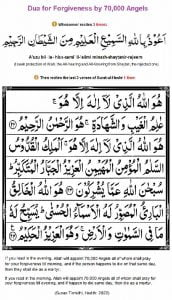 Dua for Forgiveness by 70,000 Angels
Whosoever recites 3 times:
أَعُوذُ بِاللهِ السَّمِيْعِ الْعَلِيْمِ مِنَ الشَّيْطَانِ الرَّجِيْمِ
A'uzu bil-la-his-samii'il-'aliimi minash-shaytanir-rajeem
(I seek protection of Allah, the All-hearing and All-Knowing from Shaytan, the rejected one)
Then recites the last 3 verses of Surah al-Hashr 1 time:
هُوَ اللهُ الَّذِي لَا إِلٰهَ إِلَّا هُوَ ۚ
عٰلِمُ الْغَيْبِ وَالشَّهَادَةِ ۚ هُوَ الرَّحْمٰنُ الرَّحِيْمُ ۝٢٢
هُوَ اللهُ الَّذِي لَا إِلٰهَ إِلَّا هُوَ ۚ الْمَلِكُ الْقُدُّوْسُ
السَّلٰمُ الْمُؤْمِنُ الْمُهَيْمِنُ الْعَزِيْزُ الْجَبَّارُ
الْمُتَكَبِّرُ ۚ سُبْحٰنَ اللهِ عَمَّا يُشْرِكُوْنَ ۝٢٣ هُوَ اللهُ الْخَالِقُ
الْبَارِئُ الْمُصَوِّرُ لَهُ الْأَسْمَاءُ الْحُسْنٰى ۚ يُسَبِّحُ لَهُ
مَا فِي السَّمٰوٰتِ وَالْأَرْضِ ۚ وَهُوَ الْعَزِيْزُ الْحَكِيْمُ ۝٢٤
If you read in the evening, Allah will appoint 70,000 angels all of whom shall pray
for your forgiveness till morning, and if the person happens to die on that same day,
then they shall die as a martyr.
If you read in the morning, Allah will appoint 70,000 angels all of whom shall pray
for your forgiveness till evening, and if the person happens to die that day,
then they shall die as a martyr.
(Sunan Tirmidhi, Hadith: 2922)